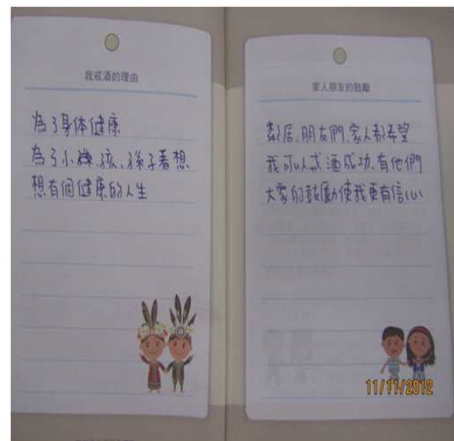 我戒酒的理由
為了身体健康
為了小孩、孫子著想
想有個健康的人生
家人朋友的鼓勵
鄰居、朋友們、家人都希望
我可以戒酒成功、有他們
大家的鼓勵使我更有信心
11/11/2012